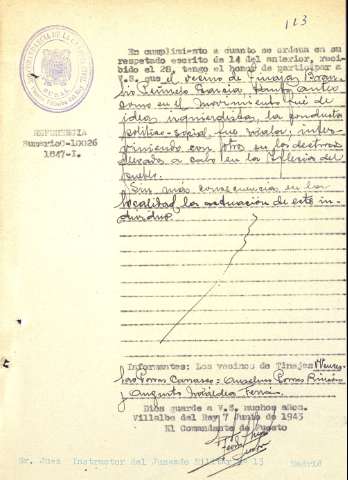 113
En cumplimiento a cuanto se ordena en su
respetado escrito de 14 del anterior, reci-
bido el 28, tengo el honor de participar a
V.S. que el vecino de Tinajas Brau-
lio García, tanto antes
como en el movimiento fué de
idea izquierdista, la conducta
político-social fué mala; inter-
viniendo con otros en los destrozos
llevado a cabo en la Iglesia del
pueblo.
Sin más consecuencia en la
localidad la actuación de este in-
dividuo
REFERENCIA
Sumario-10026
1647-I.
Informantes: Los vecinos de Tinajas Wences-
lao Porras = Anselmo Porras Rincón
y Augusto
Dios guarde a V.S. muchos años.
Villalba del Rey 7 Junio de 1943
El Comandante de Puesto
Sr. Juez Instructor del Juzgado Militar nº 13 Madrid